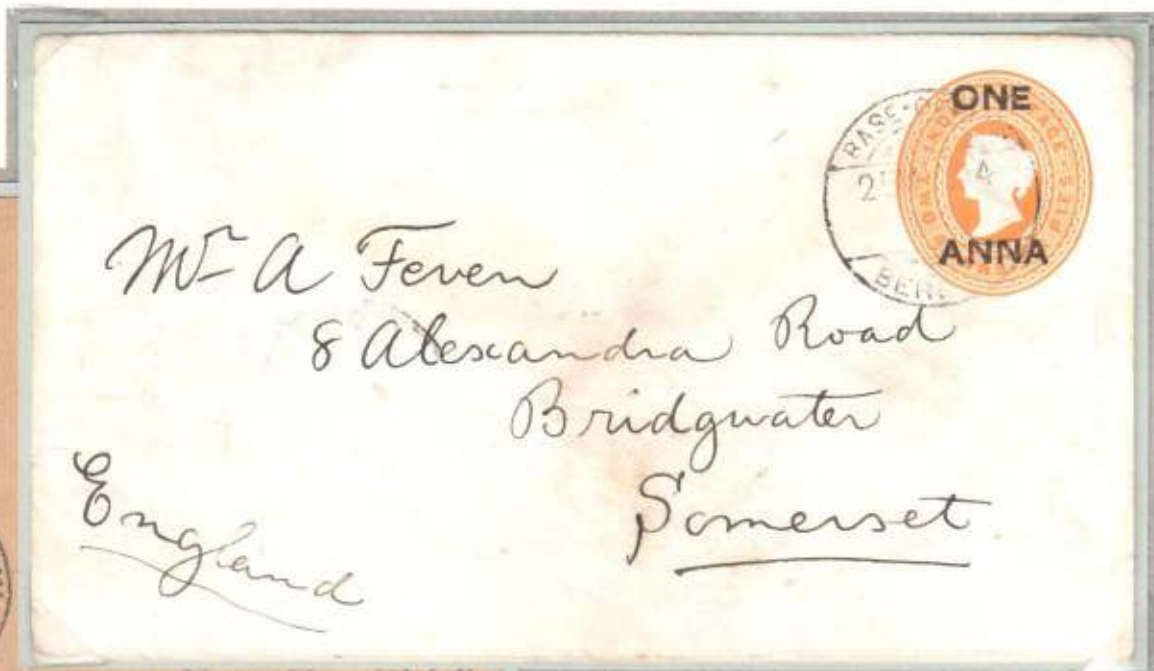 ONE
ANNA
Mr A Feven
8 Alexandra Road
Bridgwater
Somerset
England